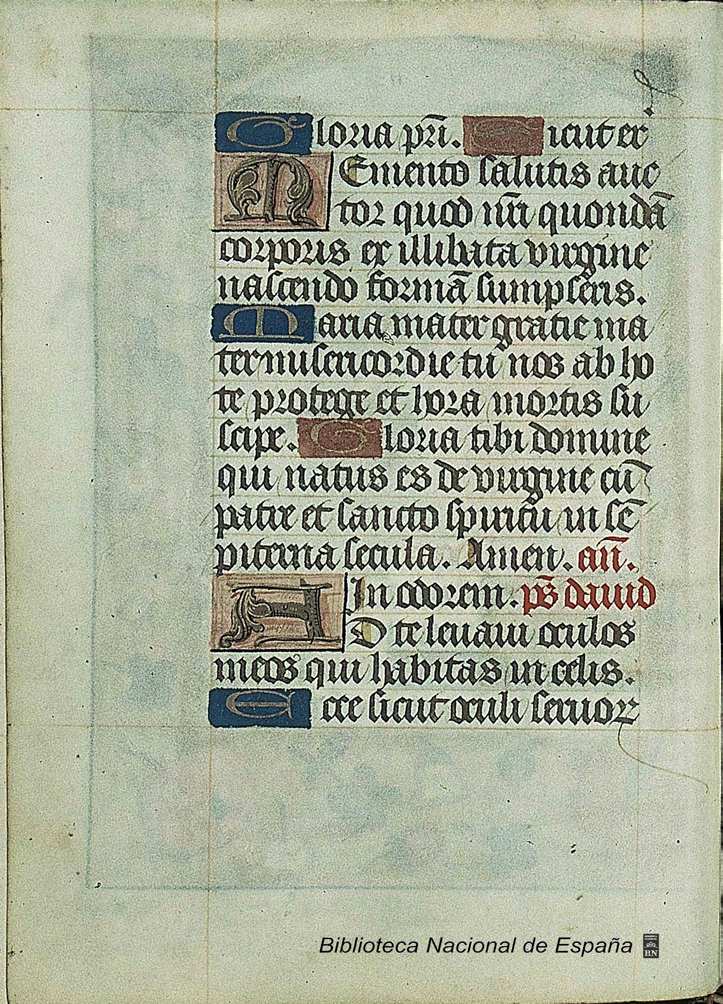 Gloria pr̄i. Sicut er
MEmento salutis auc
tor quod nr̄i quondā
corporis ex illibata virgine
nascendo formā sumpseris.
Maria mater gratie ma
ter misericordie tu nos ab ho
te protege et hora mortis su
scipe. Gloria tibi domine
qui natus es de virgine cū
patre et sancto spiritu in sē
piterna secula. Amen. an̄.
In odorem. ps̄ dauid
AD te leuaui oculos
meos qui habitas in celis.
Ecce sicut oculi seruoꝝ
Biblioteca Nacional de España
BN